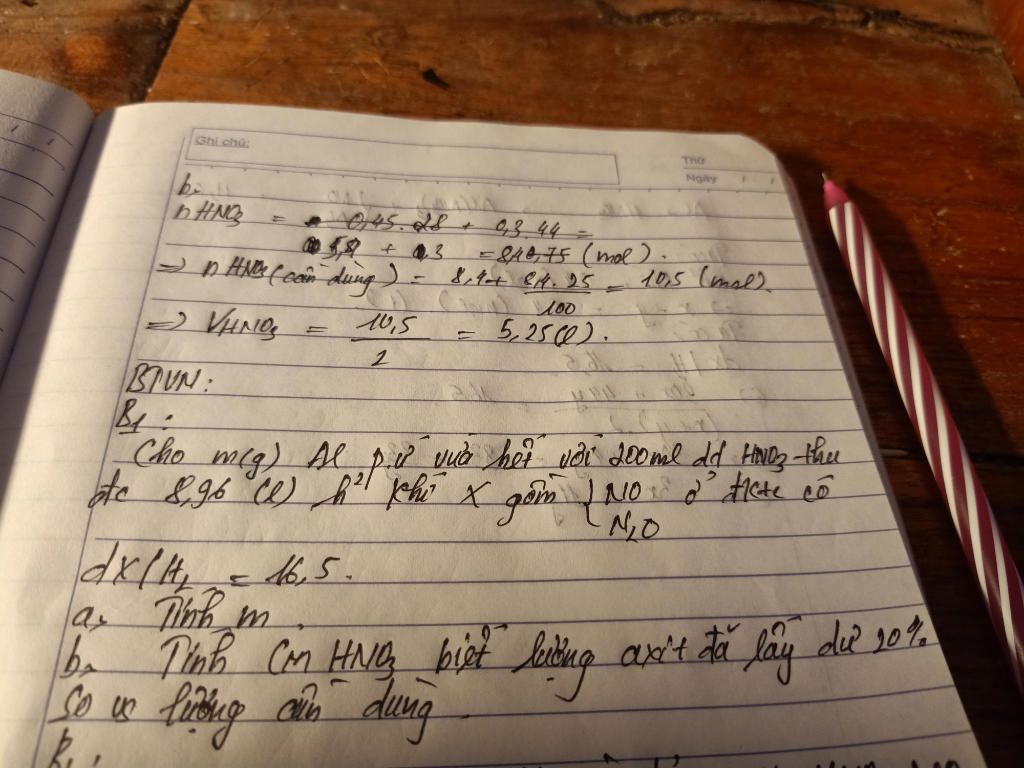 Ghi chú:
Thứ
Ngày
b,
nHNO3 = 0,45.28 + 0,3.44 =
+ = (mol).
=> nHNO3 (cần dùng) = 8,4 + 8,4.25/100 = 10,5 (mol).
=> VHNO3 = 10,5/2 = 5,25(l).
BTVN:
B1:
Cho m(g) Al p.ứ vừa hết với 200ml dd HNO3 thu
đc 8,96 (l) h² khí X gồm { NO ở đktc có
N2O
dX/H2 = 16,5.
a, Tính m.
b, Tính CM HNO3 biết lượng axit đã lấy dư 20%
so vs lượng cần dùng.